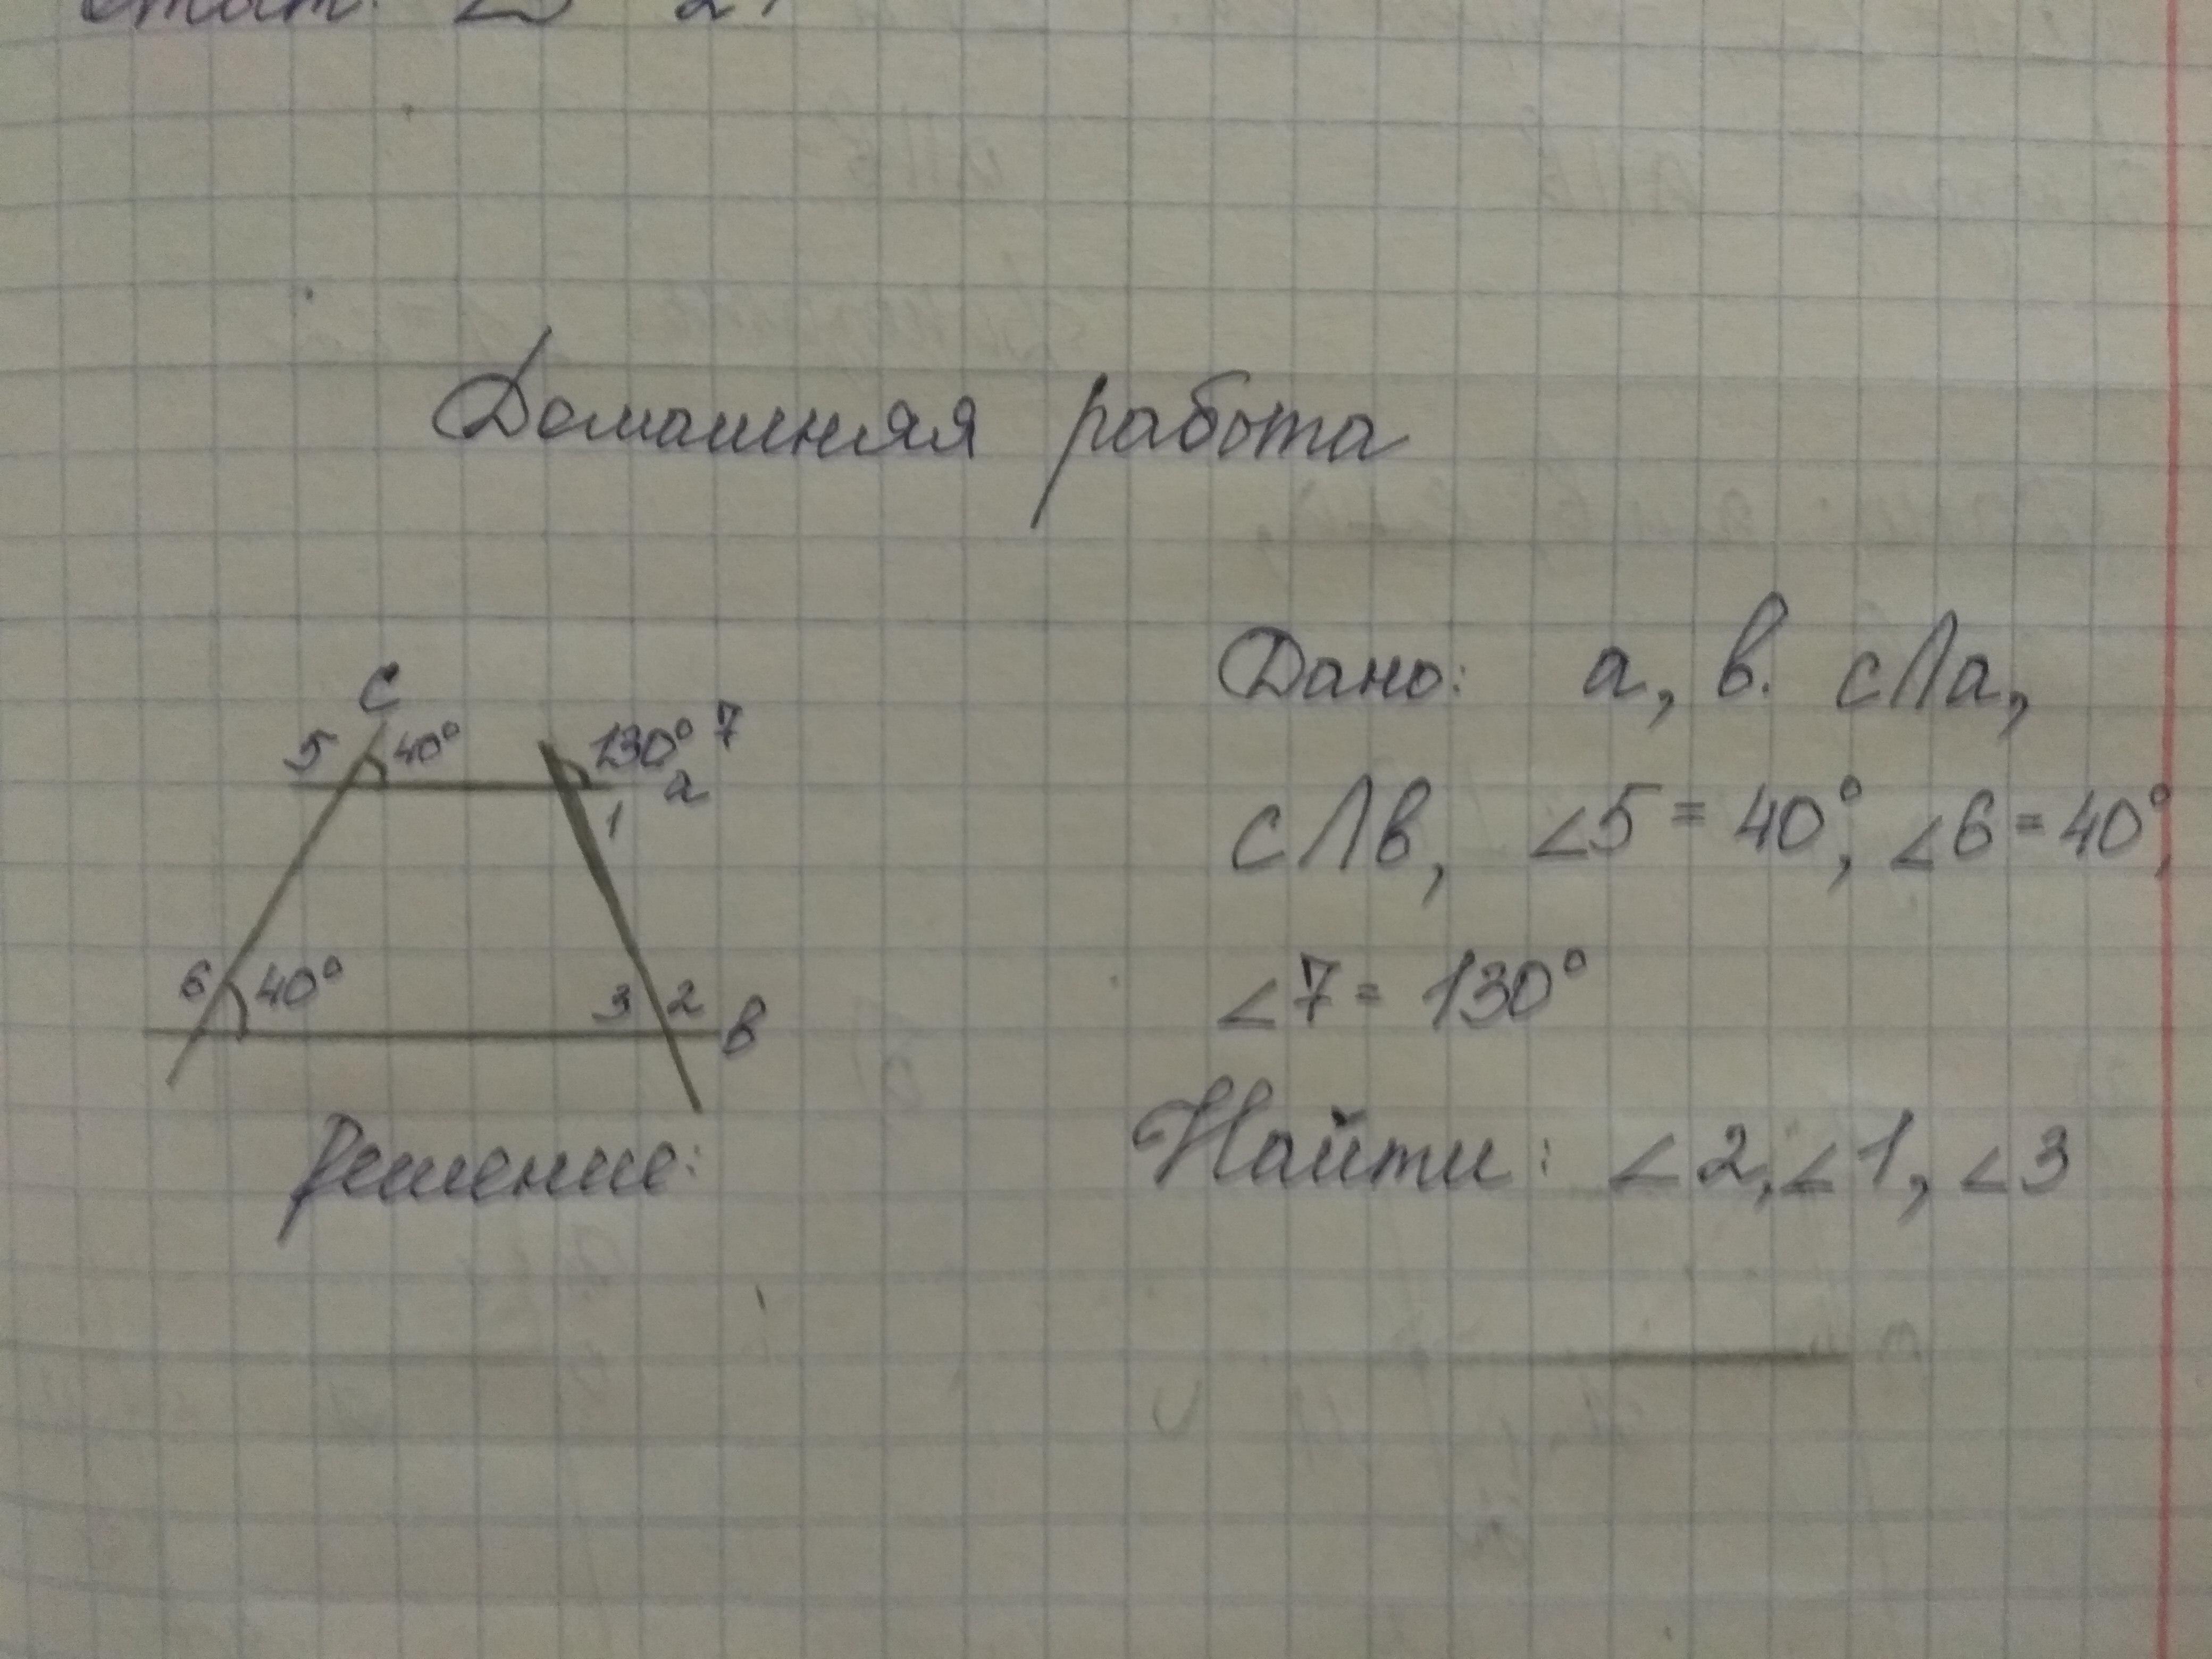 Домашняя работа
Дано: а, в. с⋂а,
с⋂в, ∠5 = 40°, ∠6 = 40°,
∠7 = 130°
Найти: ∠2, ∠1, ∠3
с
5 40° 130° 7
а
1
6 40° 3 2
в
Решение: